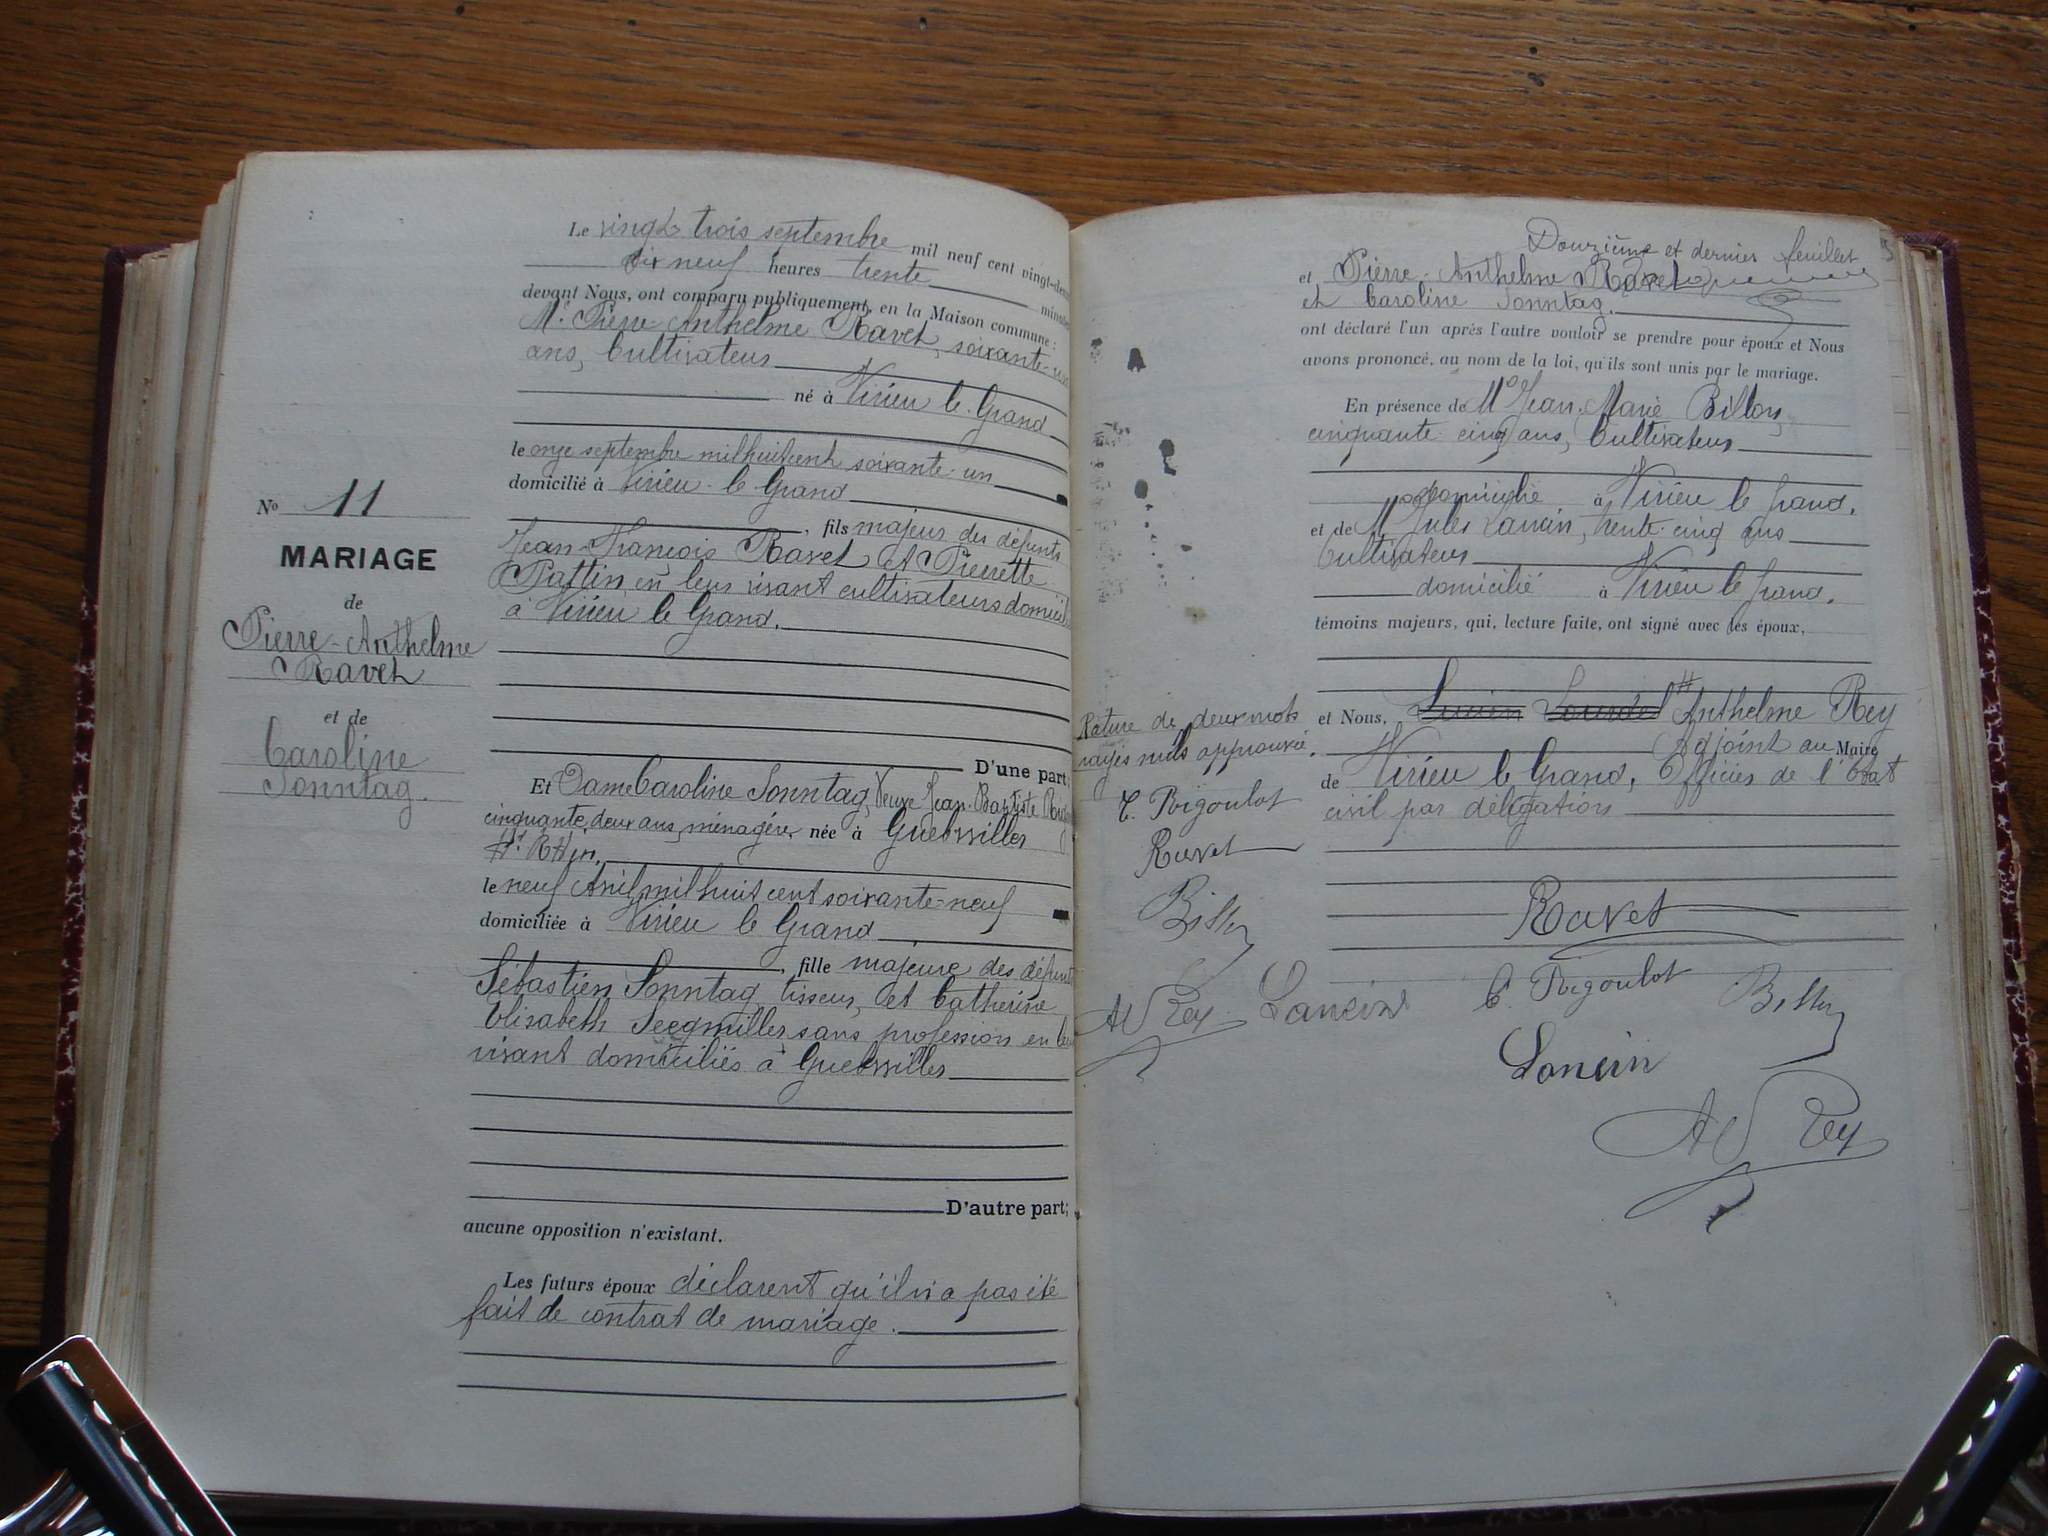 Le vingt trois septembre mil neuf cent vingt-deux
dix neuf heures trente minutes
devant Nous, ont comparu publiquement, en la Maison commune :
Mr. Pierre Anthelme Ravet, soixante-un
ans, Cultivateur
né à Virieu le Grand
le onze septembre mil huit cent soixante-un
domicilié à Virieu-le Grand
, fils majeur des défunts
Jean-François Ravet et Pierrette
Pattin, en leur vivant cultivateurs domiciliés
à Virieu le Grand.
No 11
MARIAGE
de
Pierre-Anthelme
Ravet
et de
Caroline
Sonntag.
D'une part;
Et Dame Caroline Sonntag, Veuve Jean-Baptiste
cinquante deux ans, ménagère, née à Guebwiller
Ht. Rhin.
le neuf Avril mil huit cent soixante-neuf
domiciliée à Virieu le Grand
, fille majeure des défunts
Sébastien Sonntag, tisseur, et Catherine
Elisabeth Seegmiller, sans profession en leur
vivant domiciliés à Guebwiller
D'autre part;
aucune opposition n'existant.
Les futurs époux déclarent qu'il n'a pas été
fait de contrat de mariage.
Douzième et dernier feuillet
et Pierre-Anthelme Ravet
et Caroline Sonntag.
ont déclaré l'un après l'autre vouloir se prendre pour époux et Nous
avons prononcé, au nom de la loi, qu'ils sont unis par le mariage.
En présence de Mr Jean-Marie Billon,
cinquante cinq ans, Cultivateur
domicilié à Virieu le Grand.
et de Mr Jules Lancin, trente-cinq ans
Cultivateur
domicilié à Virieu le Grand.
témoins majeurs, qui, lecture faite, ont signé avec les époux,
et Nous, Lucien # Anthelme Rey
Adjoint au Maire
de Virieu le Grand, Officier de l'Etat
civil par délégation
Rature de deux mots
rayés nuls approuvée.
C. Rigoulot
Ravet
Billon
A Rey Lancin
Ravet
C. Rigoulot Billon
Lancin
A Rey